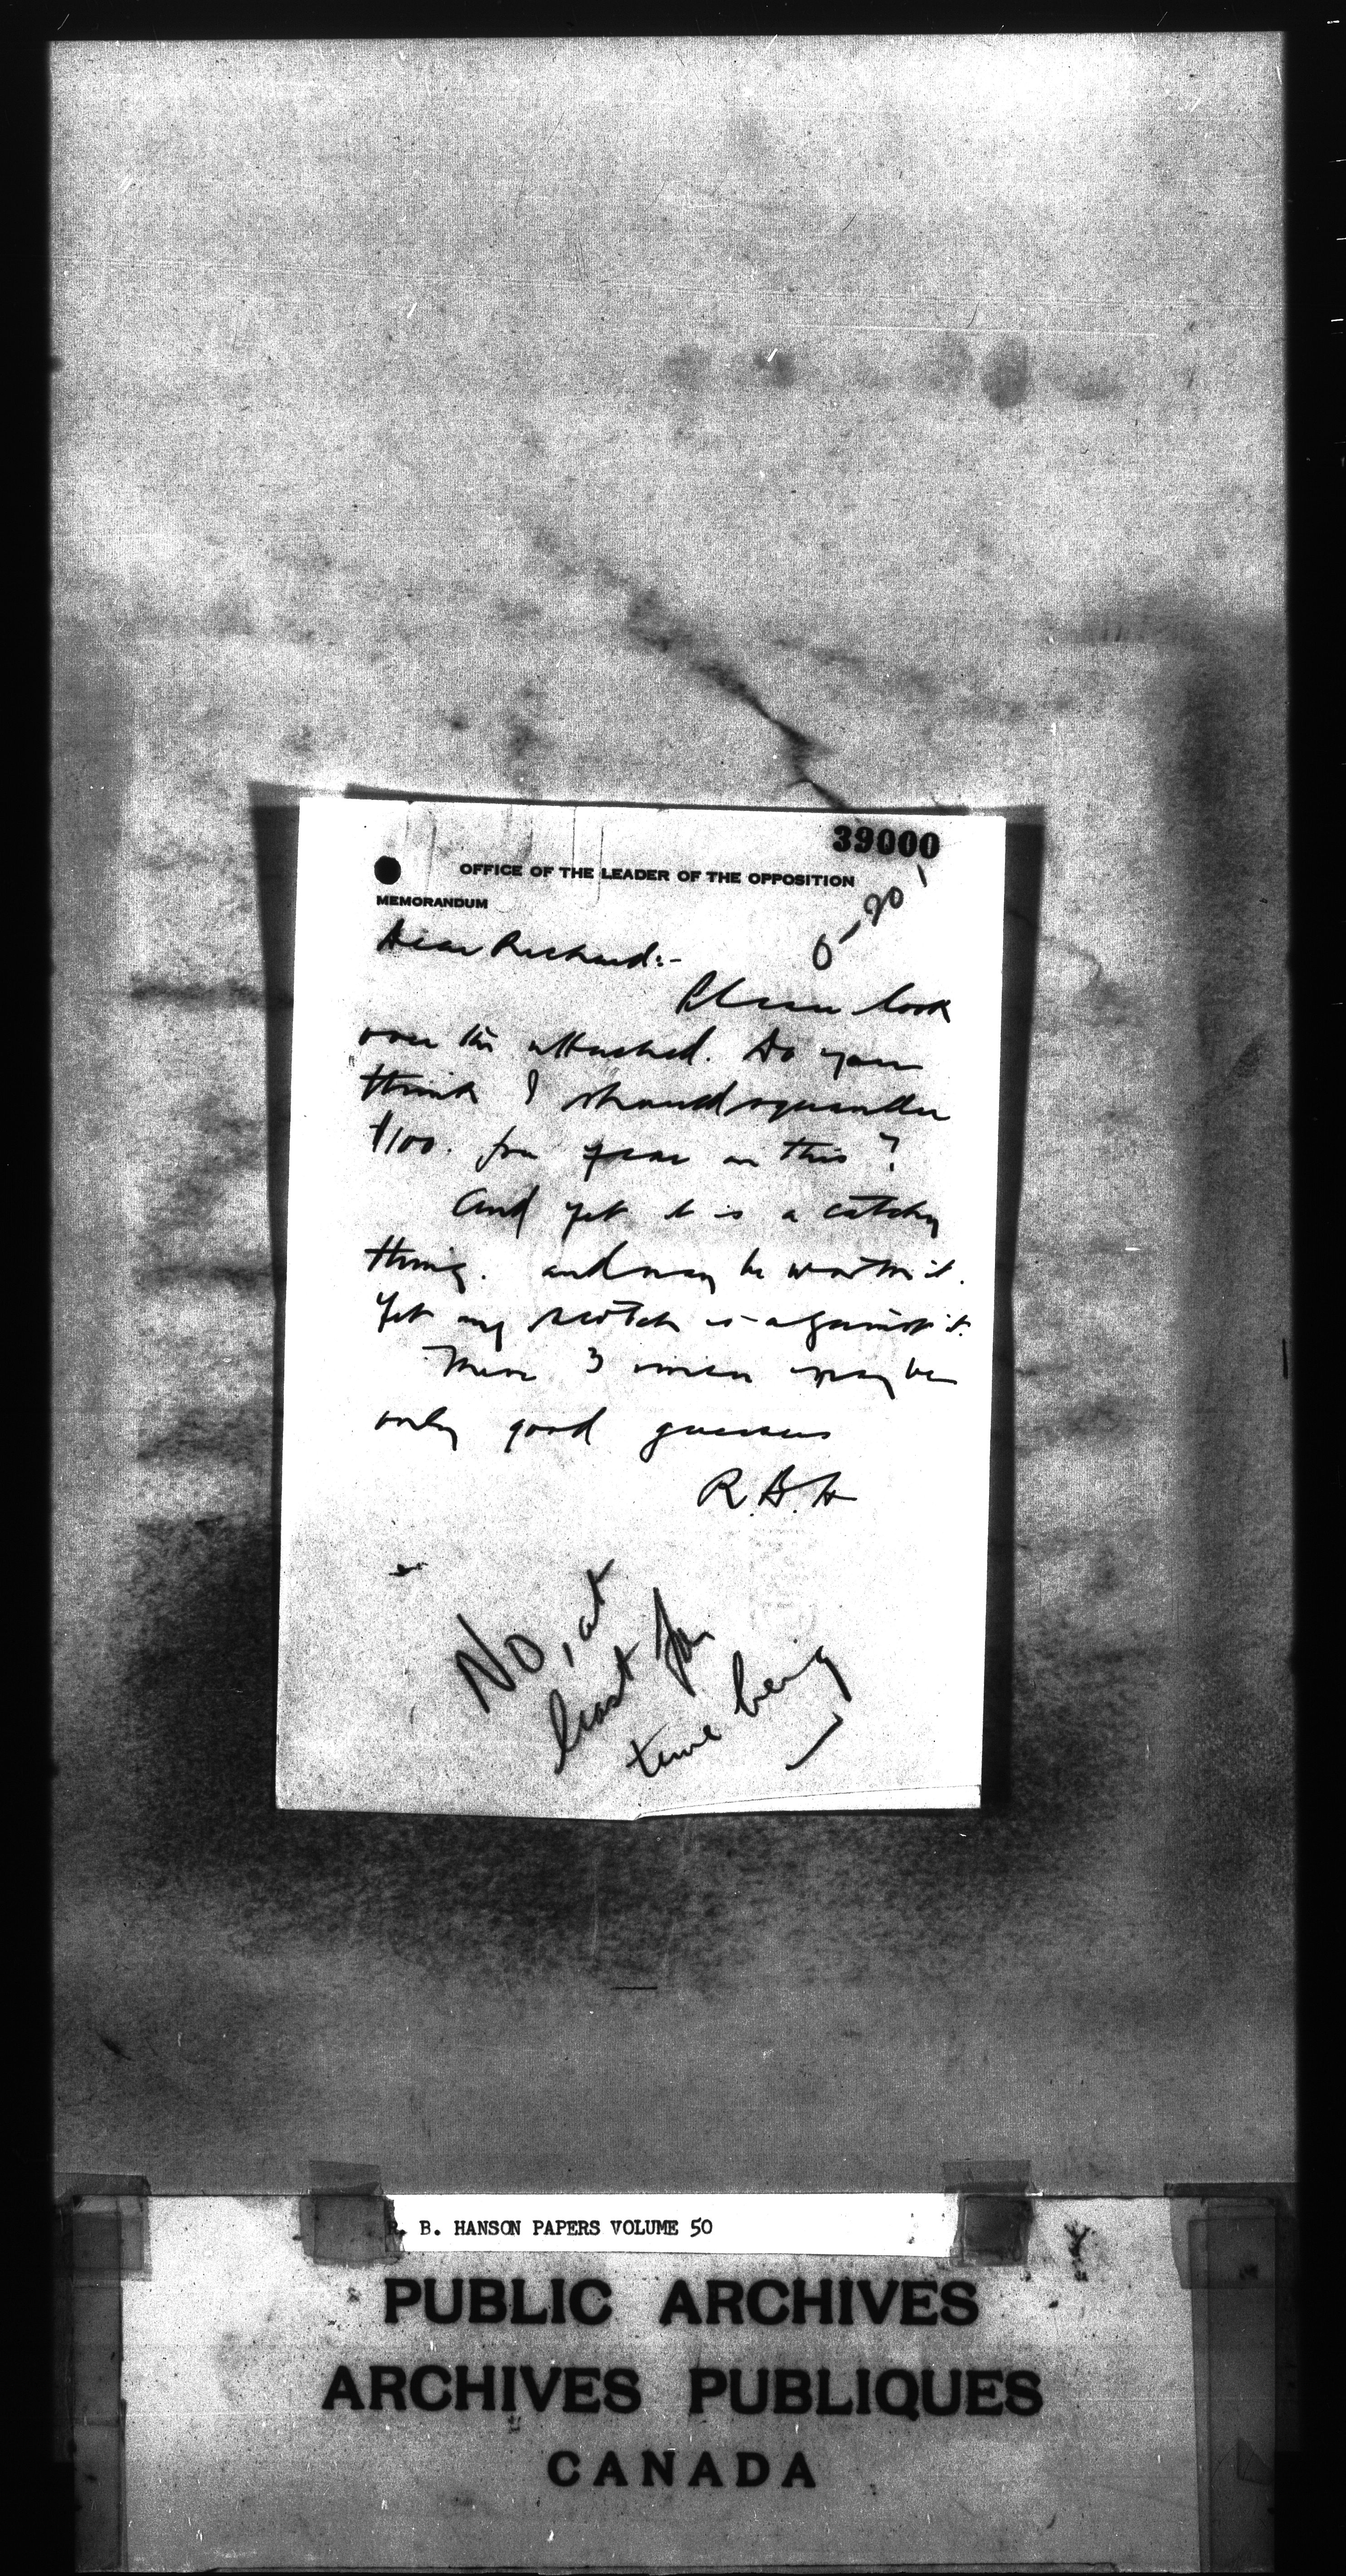 39000
OFFICE OF THE LEADER OF THE OPPOSITION
MEMORANDUM
O-20
Dear Richard:-
Please look
over the attached. Do you
think I should squander
$100. per year on this?
And yet it is a catchy
thing. and may be worth it.
Yet my scotch is against it.
These 3 may be
only good guesses
R.B.H
No, at
least for
time being
R. B. HANSON PAPERS VOLUME 50
PUBLIC ARCHIVES
ARCHIVES PUBLIQUES
CANADA